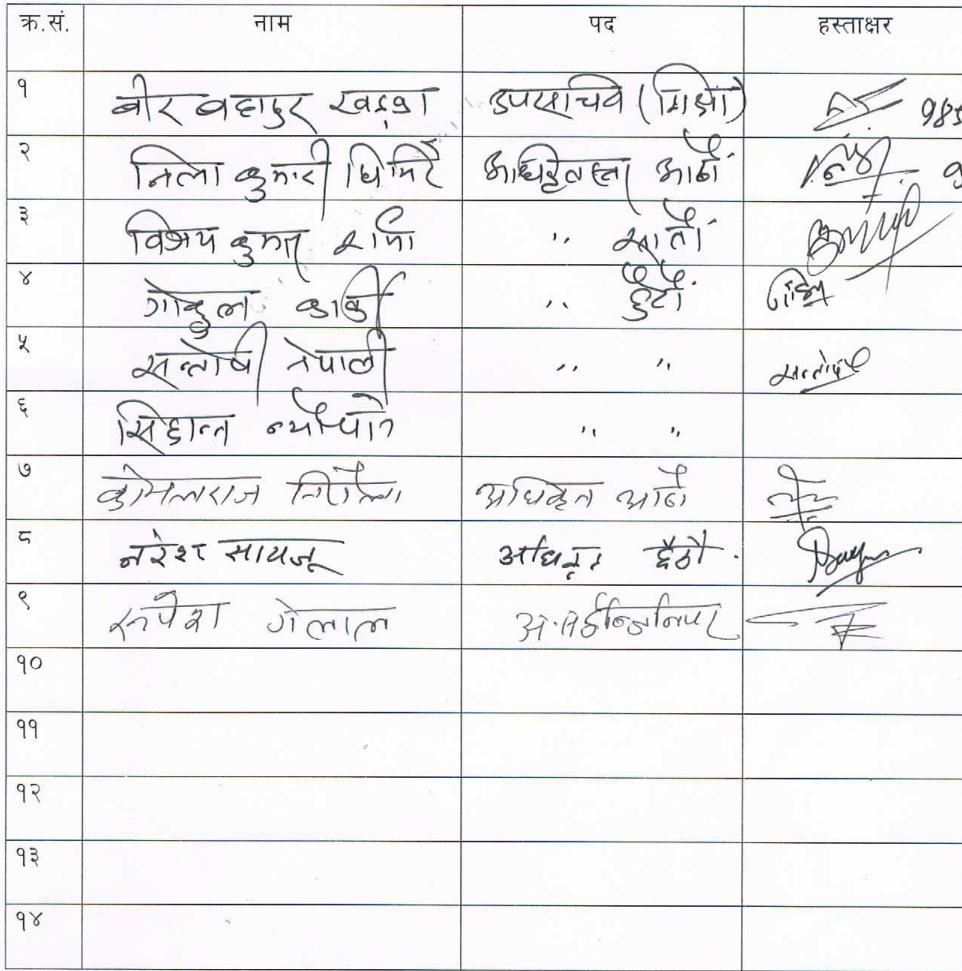 क्र.सं. नाम पद हस्ताक्षर
१ वीर बहादुर खड्का उपसचिव (शिक्षा) 985
२ निला कुमारी घिमिरे आठौं 9
३ विजय कुमार शर्मा ,, सातौं
४ गोकुल कार्की ,, छैटौं
५ सन्तोषी नेपाली ,, ,,
६ सिद्दान्त न्यौपाने ,, ,,
७ कोमलराज निरौला अधिकृत आठौं
८ नरेश सायजू अधिकृत छैठौ
९ रुपेश गेलाल
१०
११
१२
१३
१४